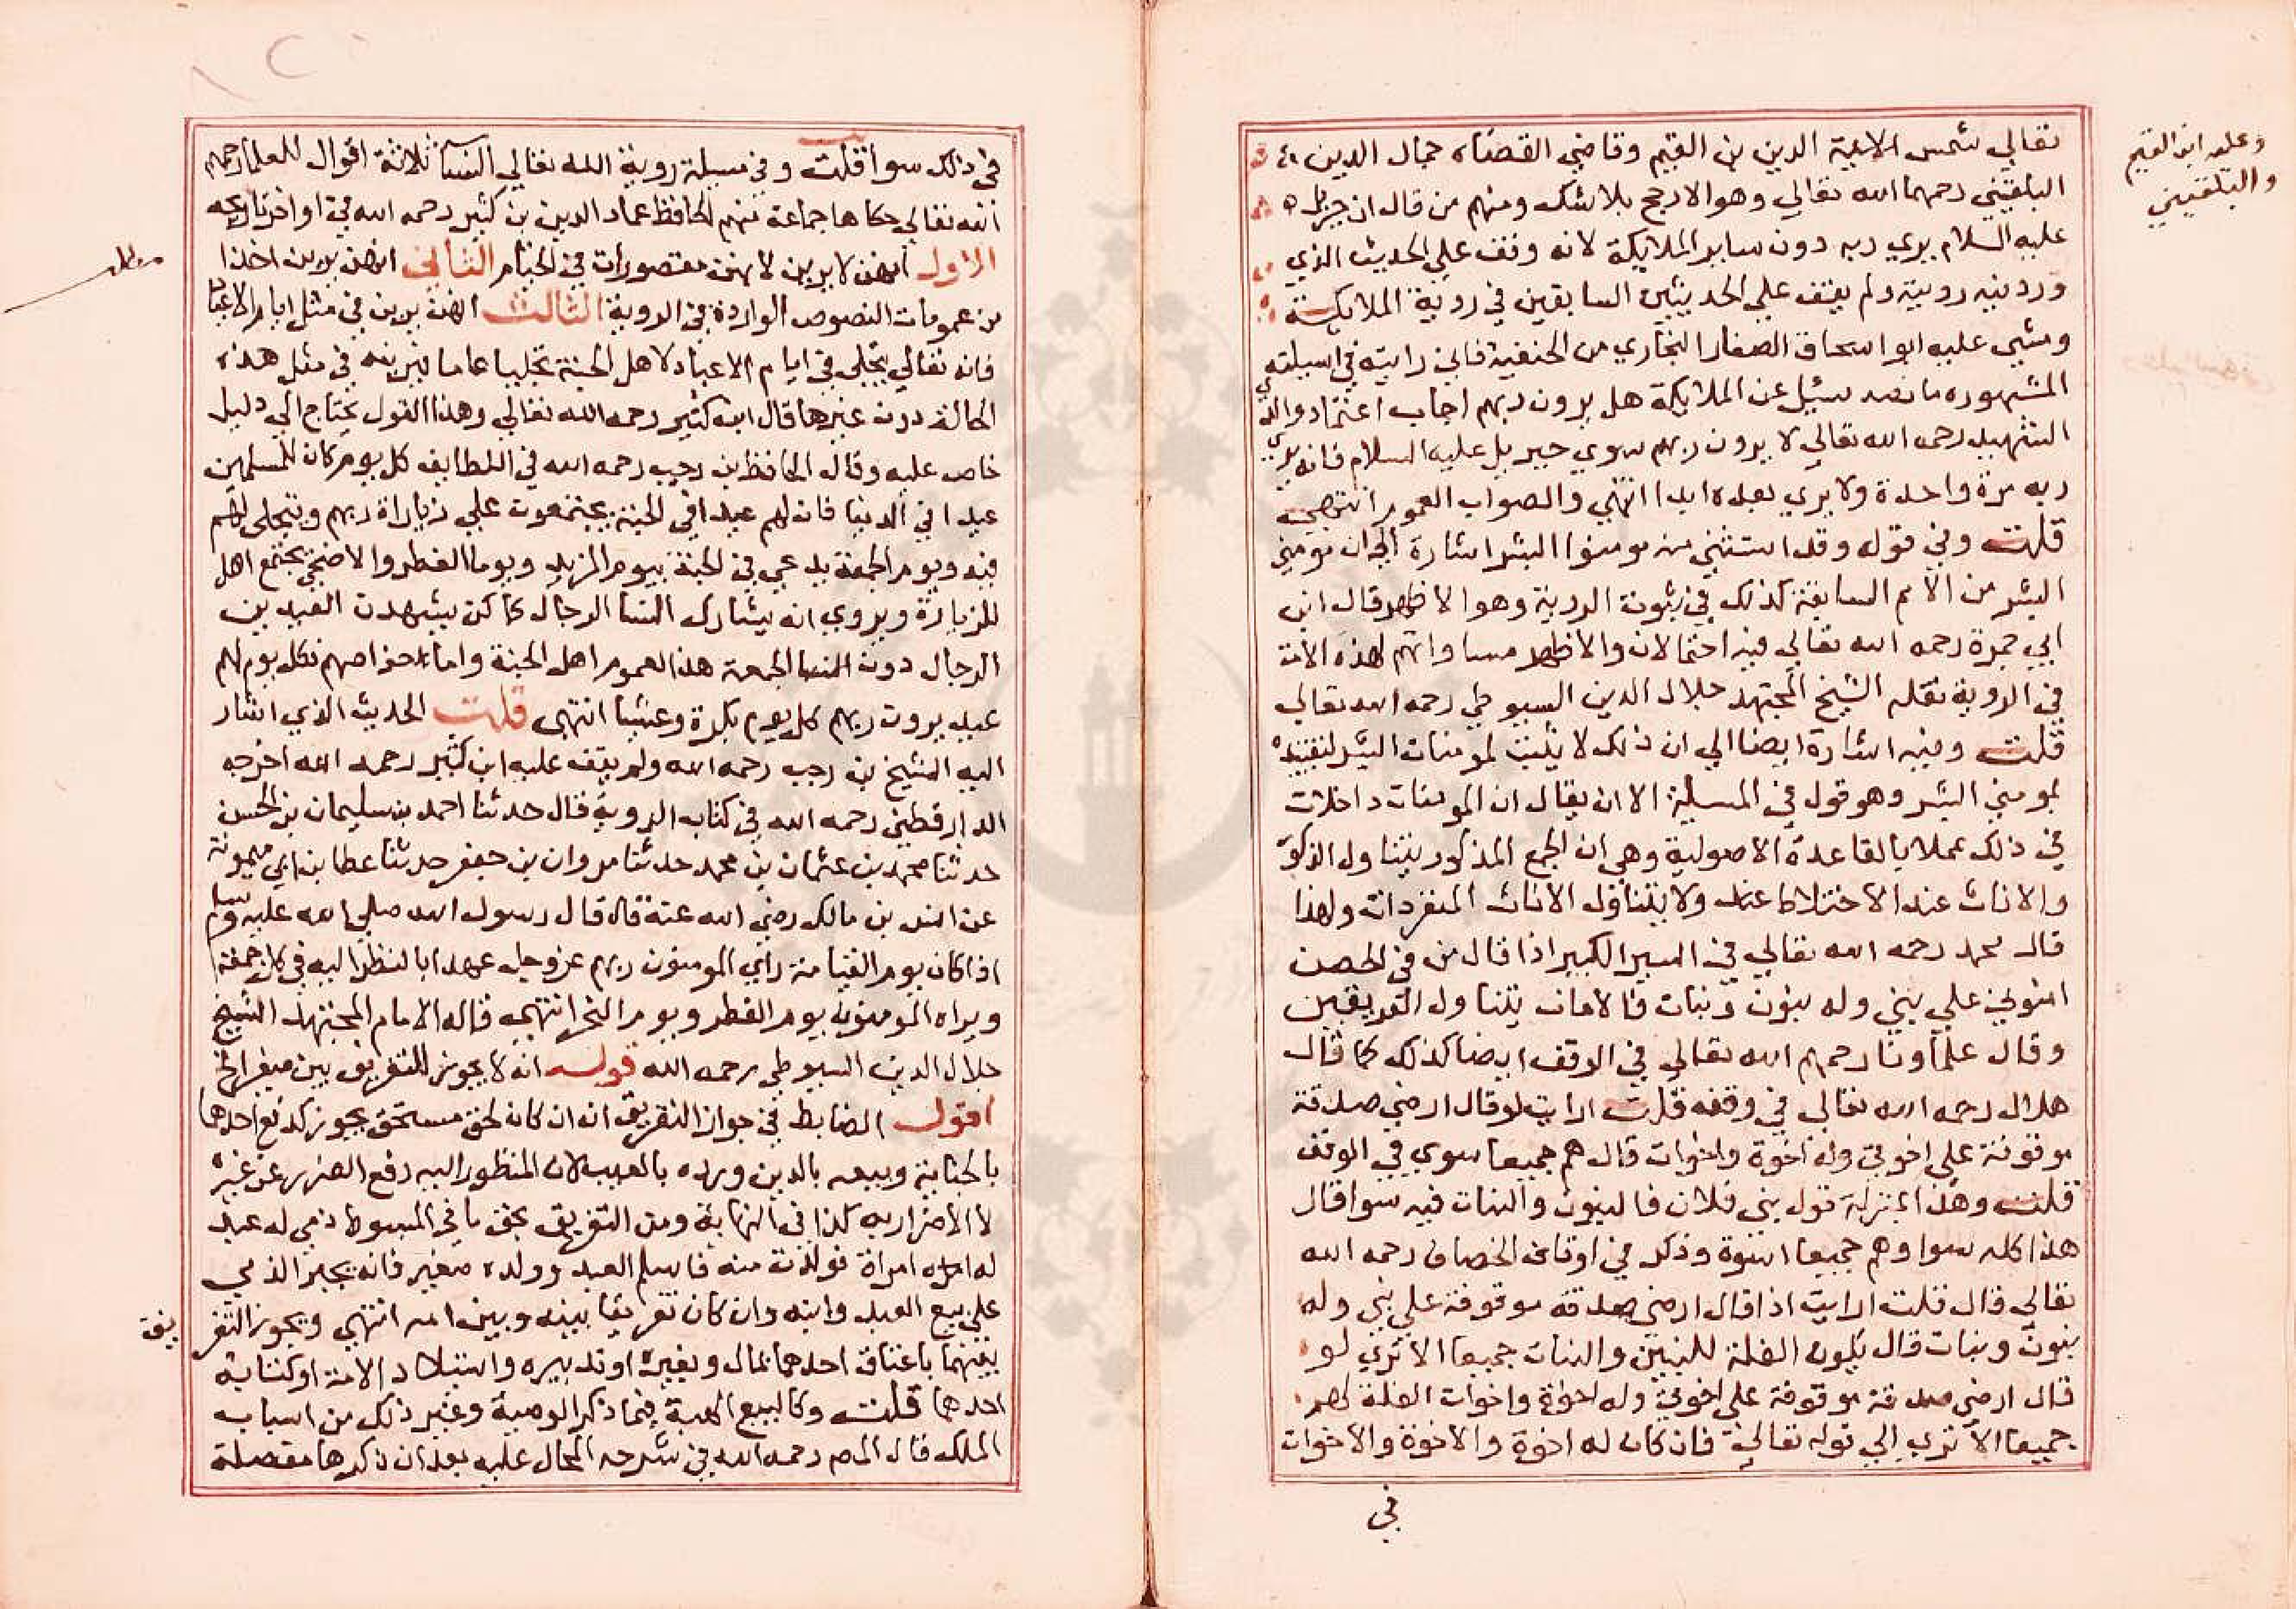 تعالي شمس الايمة الدين بن القيم وقاضي القضاه جمال الدين
البلقيني رحمهما الله تعالي وهو الارجح بلا شك ومنهم من قال ان جبريل
عليه السلام يري ربه دون ساير الملايكة لانه وقف علي الحديث الذي
ورد فيه رويته ولم يقف علي الحديثين السابقين في روية الملايكة
ومشي عليه ابو اسحاق الصفار البخاري من الحنفية فاني رايته في اسيلته
المشهوره ما نصه سئل عن الملايكة هل يرون ربهم اجاب اعتماد والدي
الشهيد رحمه الله تعالي لا يرون ربهم سوي جبريل عليه السلام فانه يري
ربه مرة واحدة ولا يري بعده ابدا انتهي والصواب العموم انتهي
قلت وفي قوله وقد استثني منه مومنوا البشر اشارة الي ان مومني
البشر من الامم السابقة كذلك في ثبوت الروية وهو الاظهر قال ابن
ابي جمرة رحمه الله تعالي فيه احتمالان والاظهر مساواتهم لهذه الامة
في الروية نقله الشيخ المجتهد جلال الدين السيوطي رحمه الله تعالي
قلت وفيه اشارة ايضا الي ان ذلك لا يثبت لمومنات البشر لتقييده
بمومني البشر وهو قول في المسيلة الا ان يقال ان المومنات داخلات
في ذلك عملا بالقاعدة الاصولية وهي ان الجمع المذكور يتناول الذكور
والاناث عند الاختلاط عندنا ولا يتناول الاناث المنفردات ولهذا
قال محمد رحمه الله تعالي في السير الكبير اذا قال من في الحصن
امنوني علي بني وله بنون وبنات فالامان يتناول الفريقين
وقال علماونا رحمهم الله تعالي في الوقف ايضا كذلك كما قال
هلال رحمه الله تعالي في وقفه قلت ارايت لو قال ارضي صدقة
موقوفة علي اخوتي وله اخوة واخوات قال هم جميعا سوي في الوقف
قلت وهذا بمنزلة قول بني فلان فالبنون والبنات فيه سوا قال
هذا كله سوا وهم جميعا اسوة وذكر في اوقاف الخصاف رحمه الله
تعالي قال قلت ارايت اذا قال ارضي صدقة موقوفة علي بني وله
بنون وبنات قال يكون الغلة للبنين والبنات جميعا الا تري لو
قال ارضي صدقة موقوفة علي اخوتي وله اخوة واخوات الغلة لهم
جميعا الا تري الي قوله تعالي فان كان له اخوة والاخوة والاخوات
في
وعليه ابن القيم
والبلقيني
في ذلك سوا قلت وفي مسيلة روية الله تعالي النسا ثلاثة اقوال للعلما رحمهم
الله تعالي حكاها جماعة منهم الحافظ عماد الدين بن كثير رحمه الله في اواخر تاريخه
الاول انهن لا يرين لانهن مقصورات في الخيام الثاني انهن يرين اخذا
من عمومات النصوص الواردة في الروية الثالث انهن يرين في مثل ايام الاعياد
فانه تعالي يتجلي في ايام الاعياد لاهل الجنة تجليا عاما فيرينه في مثل هذه
الحالة دون غيرها قال ابن كثير رحمه الله تعالي وهذا القول يحتاج الي دليل
خاص عليه وقال الحافظ بن رجب رحمه الله في اللطايف كل يوم كان للمسلمين
عيدا في الدنيا فانه لهم عيدا في الجنة يجتمعون علي زيارة ربهم ويتجلي لهم
فيه ويوم الجمعة يدعي في الجنة بيوم المزيد ويوما الفطر والاضحي يجتمع اهل
للزيارة ويروي انه يشارك النسا الرجال كما كن يشهدن العيدين
الرجال دون النسا الجمعة هذا لعموم اهل الجنة واما خواصهم فكل يوم لهم
عيد يروت ربهم كل يوم بكرة وعشيا انتهي قلت الحديث الذي اشار
اليه الشيخ بن رجب رحمه الله ولم يقف عليه ابن كثير رحمه الله اخرجه
الدارقطني رحمه الله في كتابه الروية قال حدثنا احمد بن سليمان بن الحسن
حدثنا محمد بن عثمان بن محمد حدثنا مروان بن جعفر حدثنا عطا بن ابي ميمونة
عن انس بن مالك رضي الله عنه قال قال رسول الله صلي الله عليه وسلم
اذا كان يوم القيامة راي المومنون ربهم عز وجل عهدا بالنظر اليه في كل جمعة
ويراه المومنون يوم الفطر ويوم النحر انتهي قاله الامام المجتهد الشيخ
جلال الدين السيوطي رحمه الله قوله انه لا يجوز التفريق بين صغير الخ
اقول الضابط في جواز التفريق انه ان كان لحق مستحق يجوز كدفع احدهما
بالجناية وبيعه بالدين ورده بالعيب لان المنظور اليه دفع الضرر عن غيره
لا الاضرار به كذا في النهاية ومن التفريق بحق ما في المبسوط ذمي له عبد
له امراة فولدت منه فاسلم العبد وولده صغير فانه يجبر الذمي
علي بيع العبد وابنه وان كان تفريقا بينه وبين امه انتهي ويجوز التفر
يق
بينهما باعتاق احدهما بمال وبغيره او تدبيره واستيلاد الامة او كتابة
احدهما قلت وكالبيع الهبة فيما ذكر الوصية وغير ذلك من اسباب
الملك قال المص رحمه الله في شرحه المحال عليه بعد ان ذكرها مفصلة
مطلب